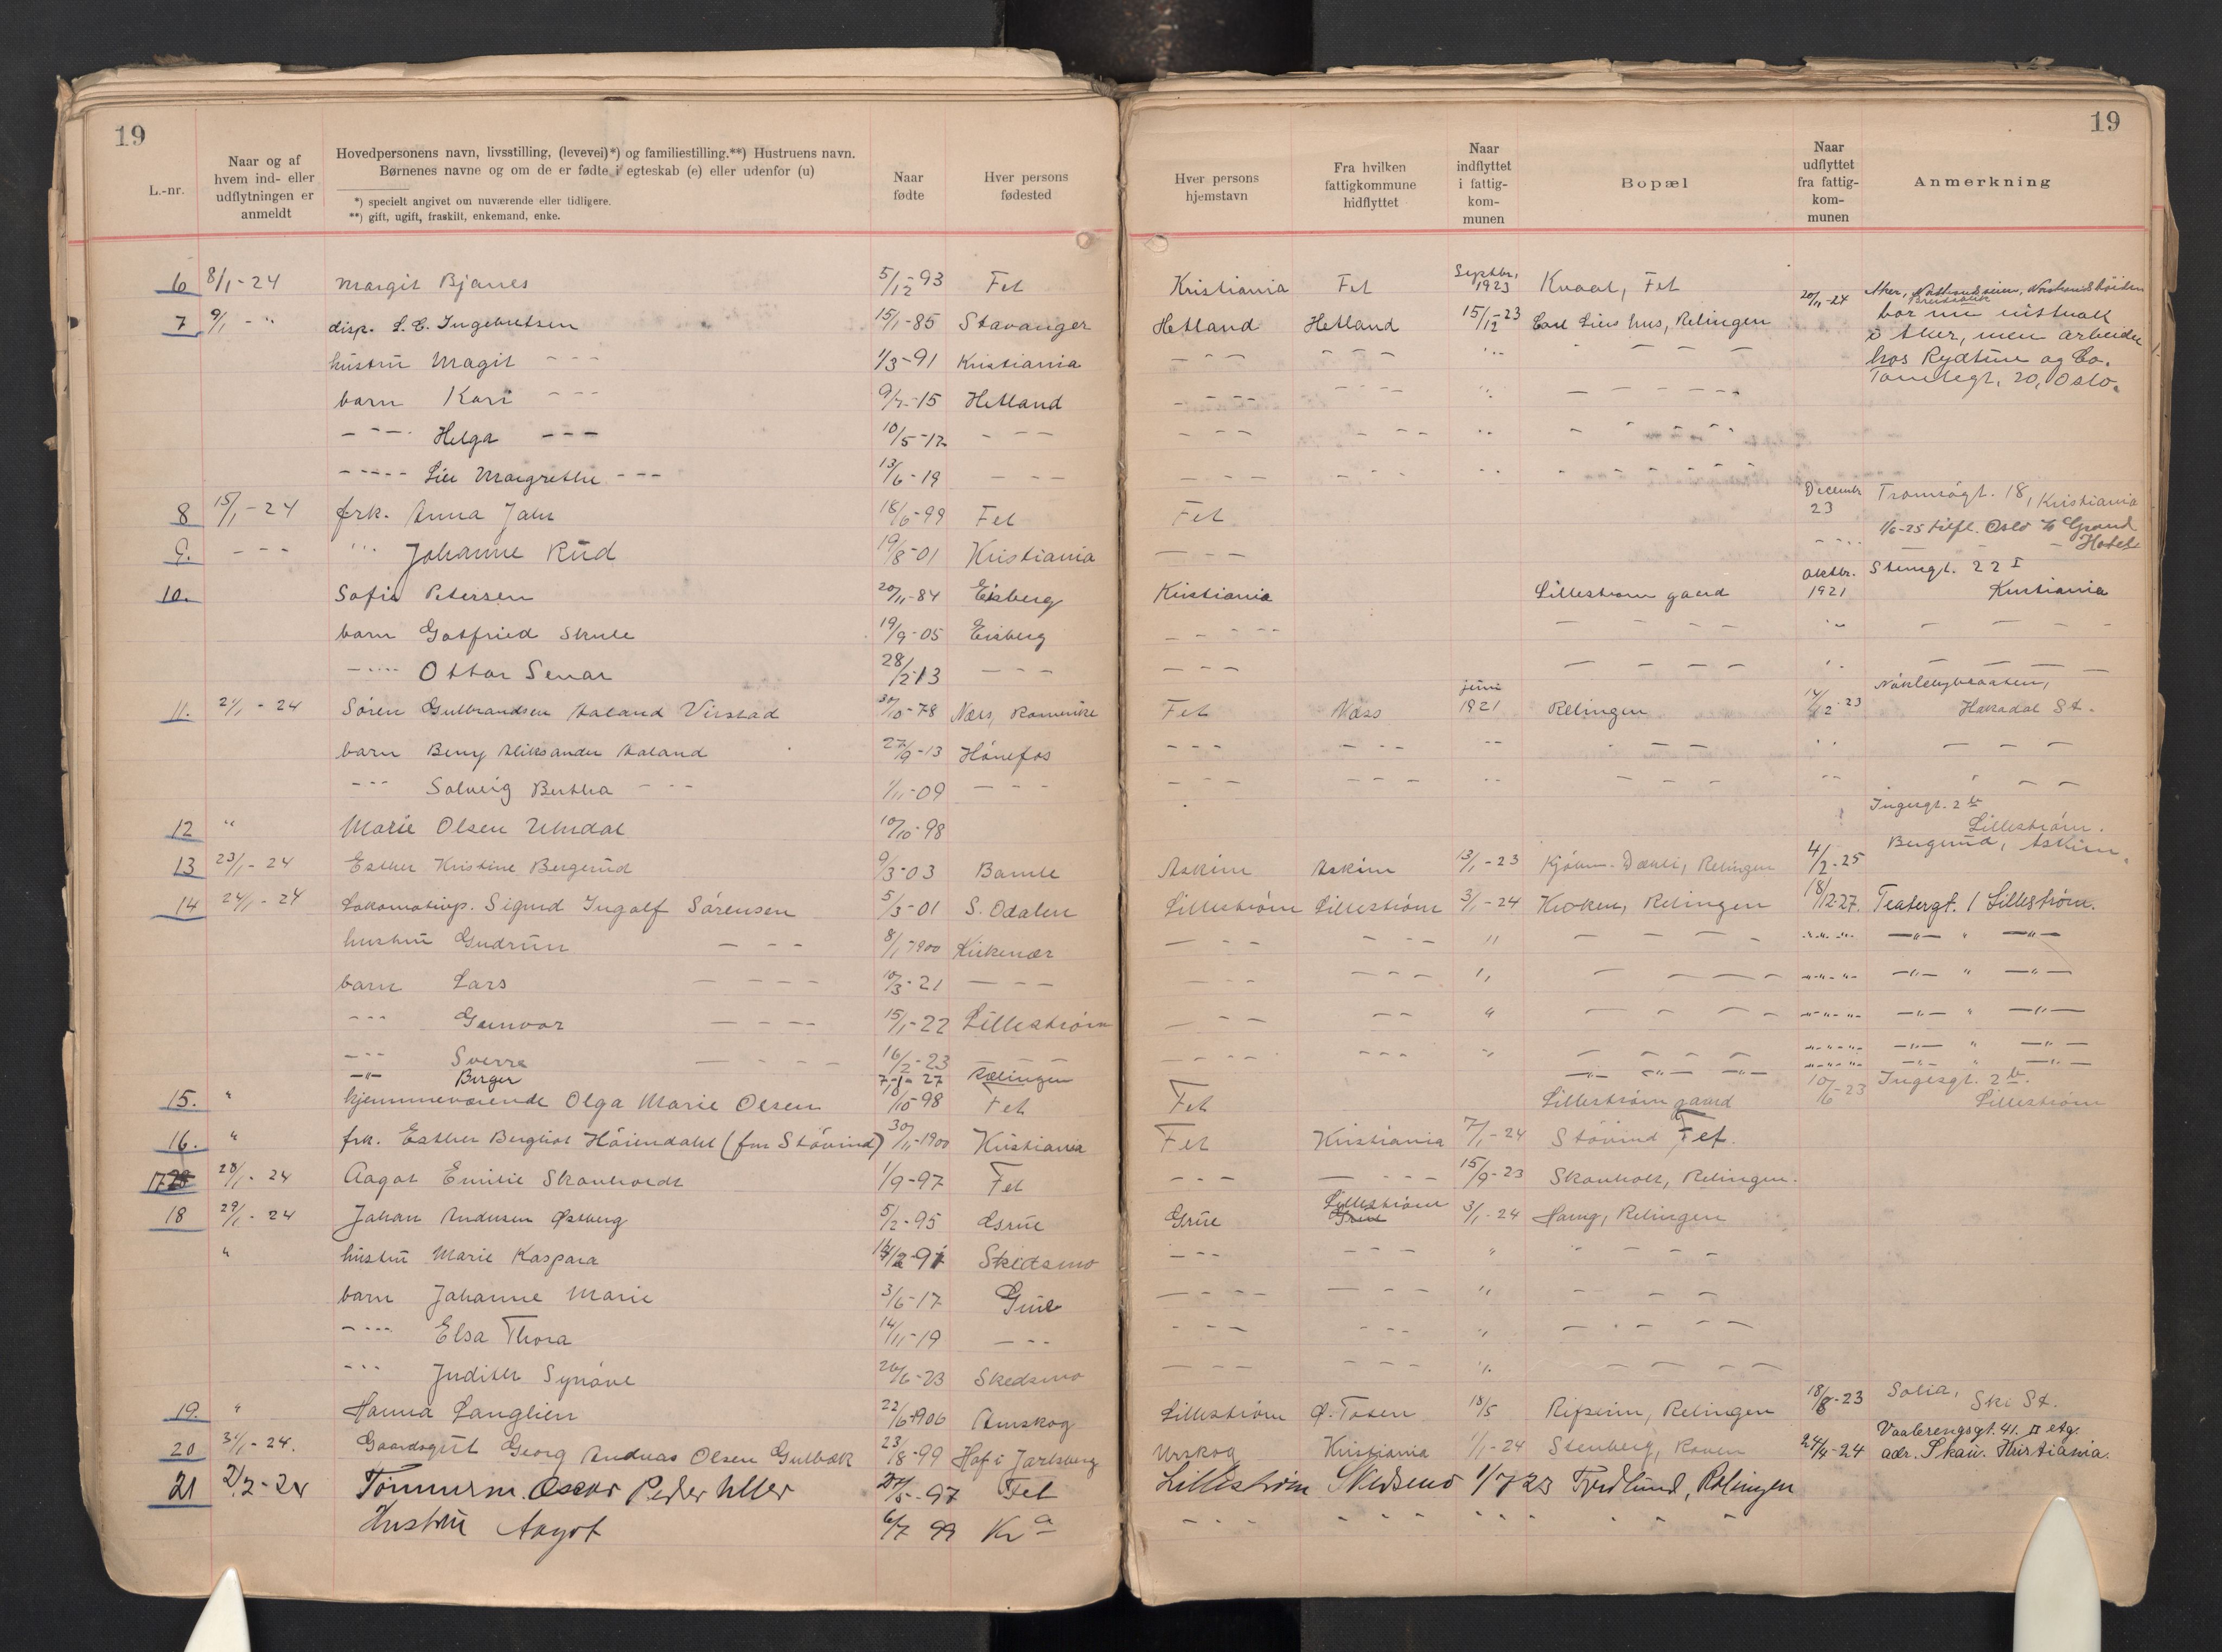 19
19
L.-nr.
Naar og af hvem ind- eller udflytningen er anmeldt
Hovedpersonens navn, livsstilling, (levevei)*) og familiestilling.**) Hustruens navn.
Børnenes navne og om de er fødte i egteskab (e) eller udenfor (u)
*) specielt angivet om nuværende eller tidligere.
**) gift, ugift, fraskilt, enkemand, enke.
Naar fødte
Hver persons fødested
Hver persons hjemstavn
Fra hvilken fattigkommune hidflyttet
Naar indflyttet i fattig-kom-munen
Bopæl
Naar udflyttet fra fattig-kom-munen
Anmerkning
6 8/1-24 Margit Bjanes 5/12-93 Fet Kristiania Fet Septbr. 1923 Kvaal, Fet
7 9/1 - " disp. S. E. Ingebretsen 15/1-85 Stavanger Hetland Hetland 15/12-23 Carl Liers hus, Relingen 20/11-24 Aker,
bor nu
i Aker, men arbeider
hustru Magit - - - 1/3-91 Kristiania - - - - - - " - - - - hos Rydtun og Co.
barn Kari - - - 9/7-15 Hetland - - - - - - - - " - - - - - - 20, Oslo.
- - - Helga - - - 10/5-17 - - - - - - - - - " - - - - -
- - - - Lill Margrethe - - - 13/6-19 - - - - - - - - - - " - - - - - -
8 15/1-24 frk. Anna Jahr 18/6-99 Fet Fet Decembr 23 Tromsögt. 18, Kristiania
1/6-25 tilfl. Oslo % Grand Hotel
9. - - - " Johanne Rud 19/8-01 Kristiania - - - - - - -
10. Sofie Petersen 20/11-84 Eisberg Kristiania Lillestrøm gaard Oktbr. 1921 Stensgt. 22 I Kristiania
barn Gotfried Skule 19/9-05 Eisberg - - - - - - - - - " - - - -
- - - Ottar Senar 28/2-13 - - - - - - - - - - " - - - -
11. 21/1-24 Søren Gulbrandsen Aaland Virstad 30/10-78 Næs, Romerike Fet Næss juni 1921 Relingen 14/12-23
Hakadal St.
barn Beny Aliksander Aaland 27/9-13 Hönefos - - - - - - " - - - " - - -
- - - Solveig Bertha - - - 1/11-09 - - - - - - - - - " - - - " - - -
12 " Marie Olsen 10/10-98 Ingesgt. 2 b
Lillestrøm.
13 23/1-24 Esther Kristine Bergerud 9/3-03 Bamle Askim Askim 13/1-23 Kjönn-Dæhli, Relingen 4/2-25 Bergerud, Askim.
14 24/1-24 Lokomotivp. Sigurd Ingolf Sörensen 5/3-01 S. Odalen Lillestrøm Lillestrøm 3/1-24 Kroken, Relingen 18/12-27. Teatergt. 1 Lillestrøm.
hustru Gudrun - - - 8/1-1900 Kirkenær - - - - - - " - - - - " " " -"- " -"-
barn Lars - - - - 10/3-21 - - - - - - - - - " - - - - " " " -"- " -"-
- - - Gunvor - - - - 15/1-22 Lillestrøm - - - - - " - - - - " " " -"- " -"-
- - - Sverre - - - - 16/2-23 - - - - - - - - - - " - - - - " " " -"- " -"-
-"- Birger 7-1-27 Rælingen -"- -"- -"- " " " -"- " -"-
15. " hjemmeværende Olga Marie Olsen 10/10-98 Fet Fet Lillestrøm gaard 10/6-23 Ingesgt. 2 b.
Lillestrøm
16. " frk. Esther Bergliot Höiendahl (fru Stövind) 30/11-1900 Kristiania Fet Kristiania 7/1-24 Stövind Fet.
17 28/1-24 Aagot Emilie Skanholdt 1/9-97 Fet - - - - - - - 15/9-23 Skanholt, Relingen.
18 29/1-24 Johan Andersen Østberg 5/2-95 Grue Grue Lillestrøm Grue 3/1-24 Haug, Relingen
" hustru Marie Kaspara Skedsmo - - - - - - " - - - -
barn Johanne Marie 3/6-17 Grue - - - - - - - - " - - - -
- - - Elsa Thora 14/11-19 - - - - - - - - - " - - - -
- - - Judith Synöve 26/6-23 Skedsmo - - - - - - - " - - - -
19. " Hanna Langlien 22/6-1906 Aurskog Lillestrøm Ø-Toten 18/5 Ripsim, Relingen 18/8-23 Solia, Ski St.
20 31/1-24. Gaardsgut Georg Andreas Olsen Gulbæk 23/8-99 Hof i Jarlsberg Urskog Kristiania 1/1-24 Stenberg, Roven 24/4-24 Vaalerengsgt. 41. II etg.
adr. Skau. Kristiania.
21 2/2-24 Tømmerm. Oscar Peder Uller -97 Fet Lillestrøm Skedsmo 1/7 23 Fredlund, Relingen
Hustru Aagot 6/7 99 Kra - - - - - - - " " " " " "